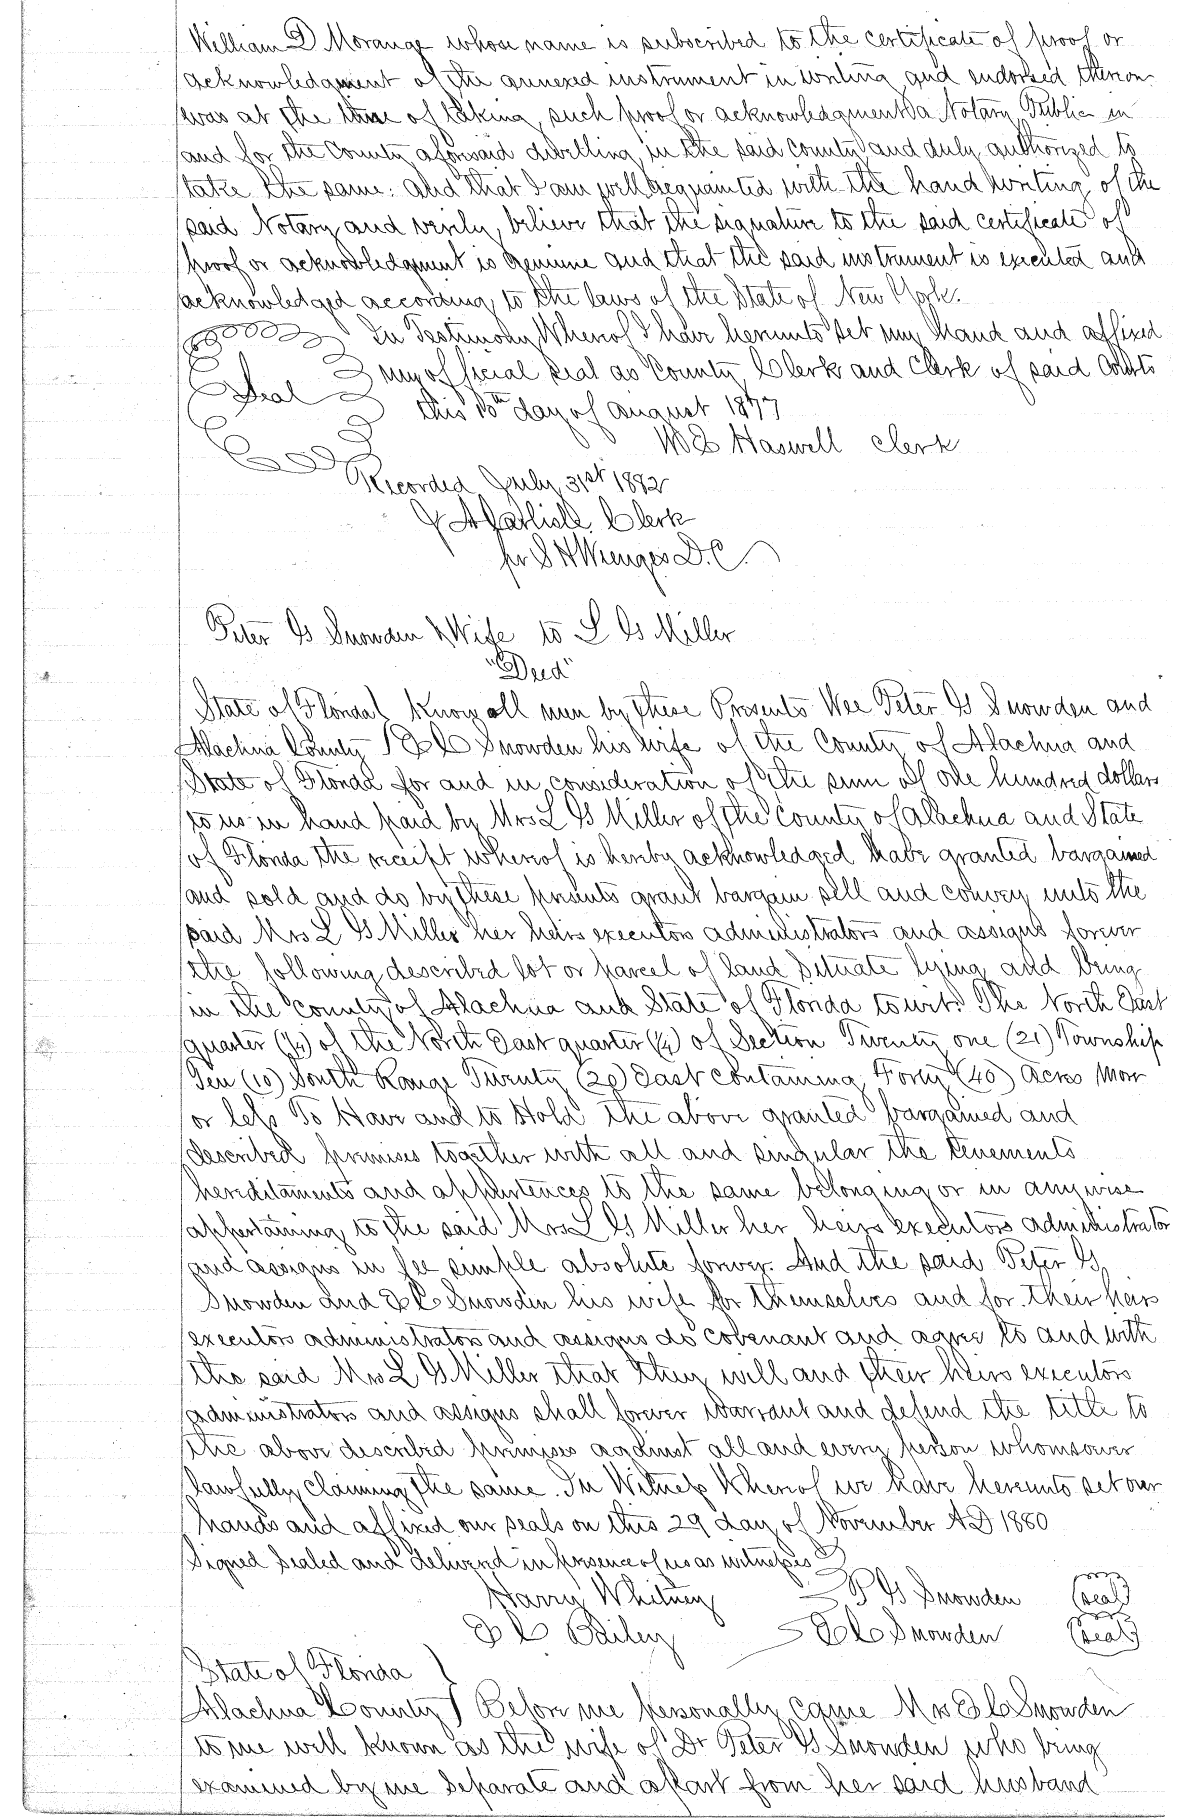 William D Morange whose name is subscribed to the certificate of proof or
acknowledgment of the annexed instrument in writing and endorsed thereon
was at the time of taking such proof or acknowledgment a Notary Public in
and for the County aforesaid dwelling in the said County and duly authorized to
take the same: And that I am well acquainted with the hand writing of the
said Notary and verily believe that the signature to the said certificate of
proof or acknowledgment is genuine and that the said instrument is executed and
acknowledged according to the laws of the State of New York.
In Testimony Whereof I have hereunto set my hand and affixed
Seal my official seal as County Clerk and Clerk of said Courts
this 10th day of August 1877
Haswell Clerk
Recorded July 31st 1882
J A Carlisle Clerk
pr S H Wienges D.C.
Peter G Snowden & Wife to L G Miller
"Deed"
State of Florida } Know all men by these Presents Wee Peter G Snowden and
Alachua County } E C Snowden his wife of the County of Alachua and
State of Florida for and in consideration of the sum of one hundred dollars
to us in hand paid by Mrs L G Miller of the County of Alachua and State
of Florida the receipt whereof is hereby acknowledged have granted bargained
and sold and do by these presents grant bargain sell and convey unto the
said Mrs L G Miller her heirs executors administrators and assigns forever
the following described lot or parcel of land Situate lying and being
in the County of Alachua and State of Florida towit. The North East
quarter (1/4) of the North East quarter (1/4) of Section Twenty one (21) Township
Ten (10) South Range Twenty (20) East containing Forty (40) Acres More
or less To Have and to Hold the above granted bargained and
described premises together with all and singular the tenements
hereditaments and appurtences to the same belonging or in anywise
appertaining to the said Mrs L G Miller her heirs executors administrator
and assigns in fee simple absolute forever. And the said Peter G
Snowden and E C Snowden his wife for themselves and for their heirs
executors administrators and assigns do covenant and agree to and with
the said Mrs L G Miller that they will and their heirs executors
administrators and assigns shall forever warrant and defend the title to
the above described premises against all and every person whomsoever
lawfully claiming the same. In Witness Whereof we have hereunto set our
hands and affixed our seals on this 29 day of November A D 1880
Signed Sealed and delivered in presence of us as witnesses
Harry Whitney P G Snowden (seal)
E C Bailey E C Snowden (seal)
State of Florida }
Alachua County } Before me personally came Mrs E C Snowden
to me well known as the wife of Dr Peter G Snowden who being
examined by me Separate and apart from her said husband